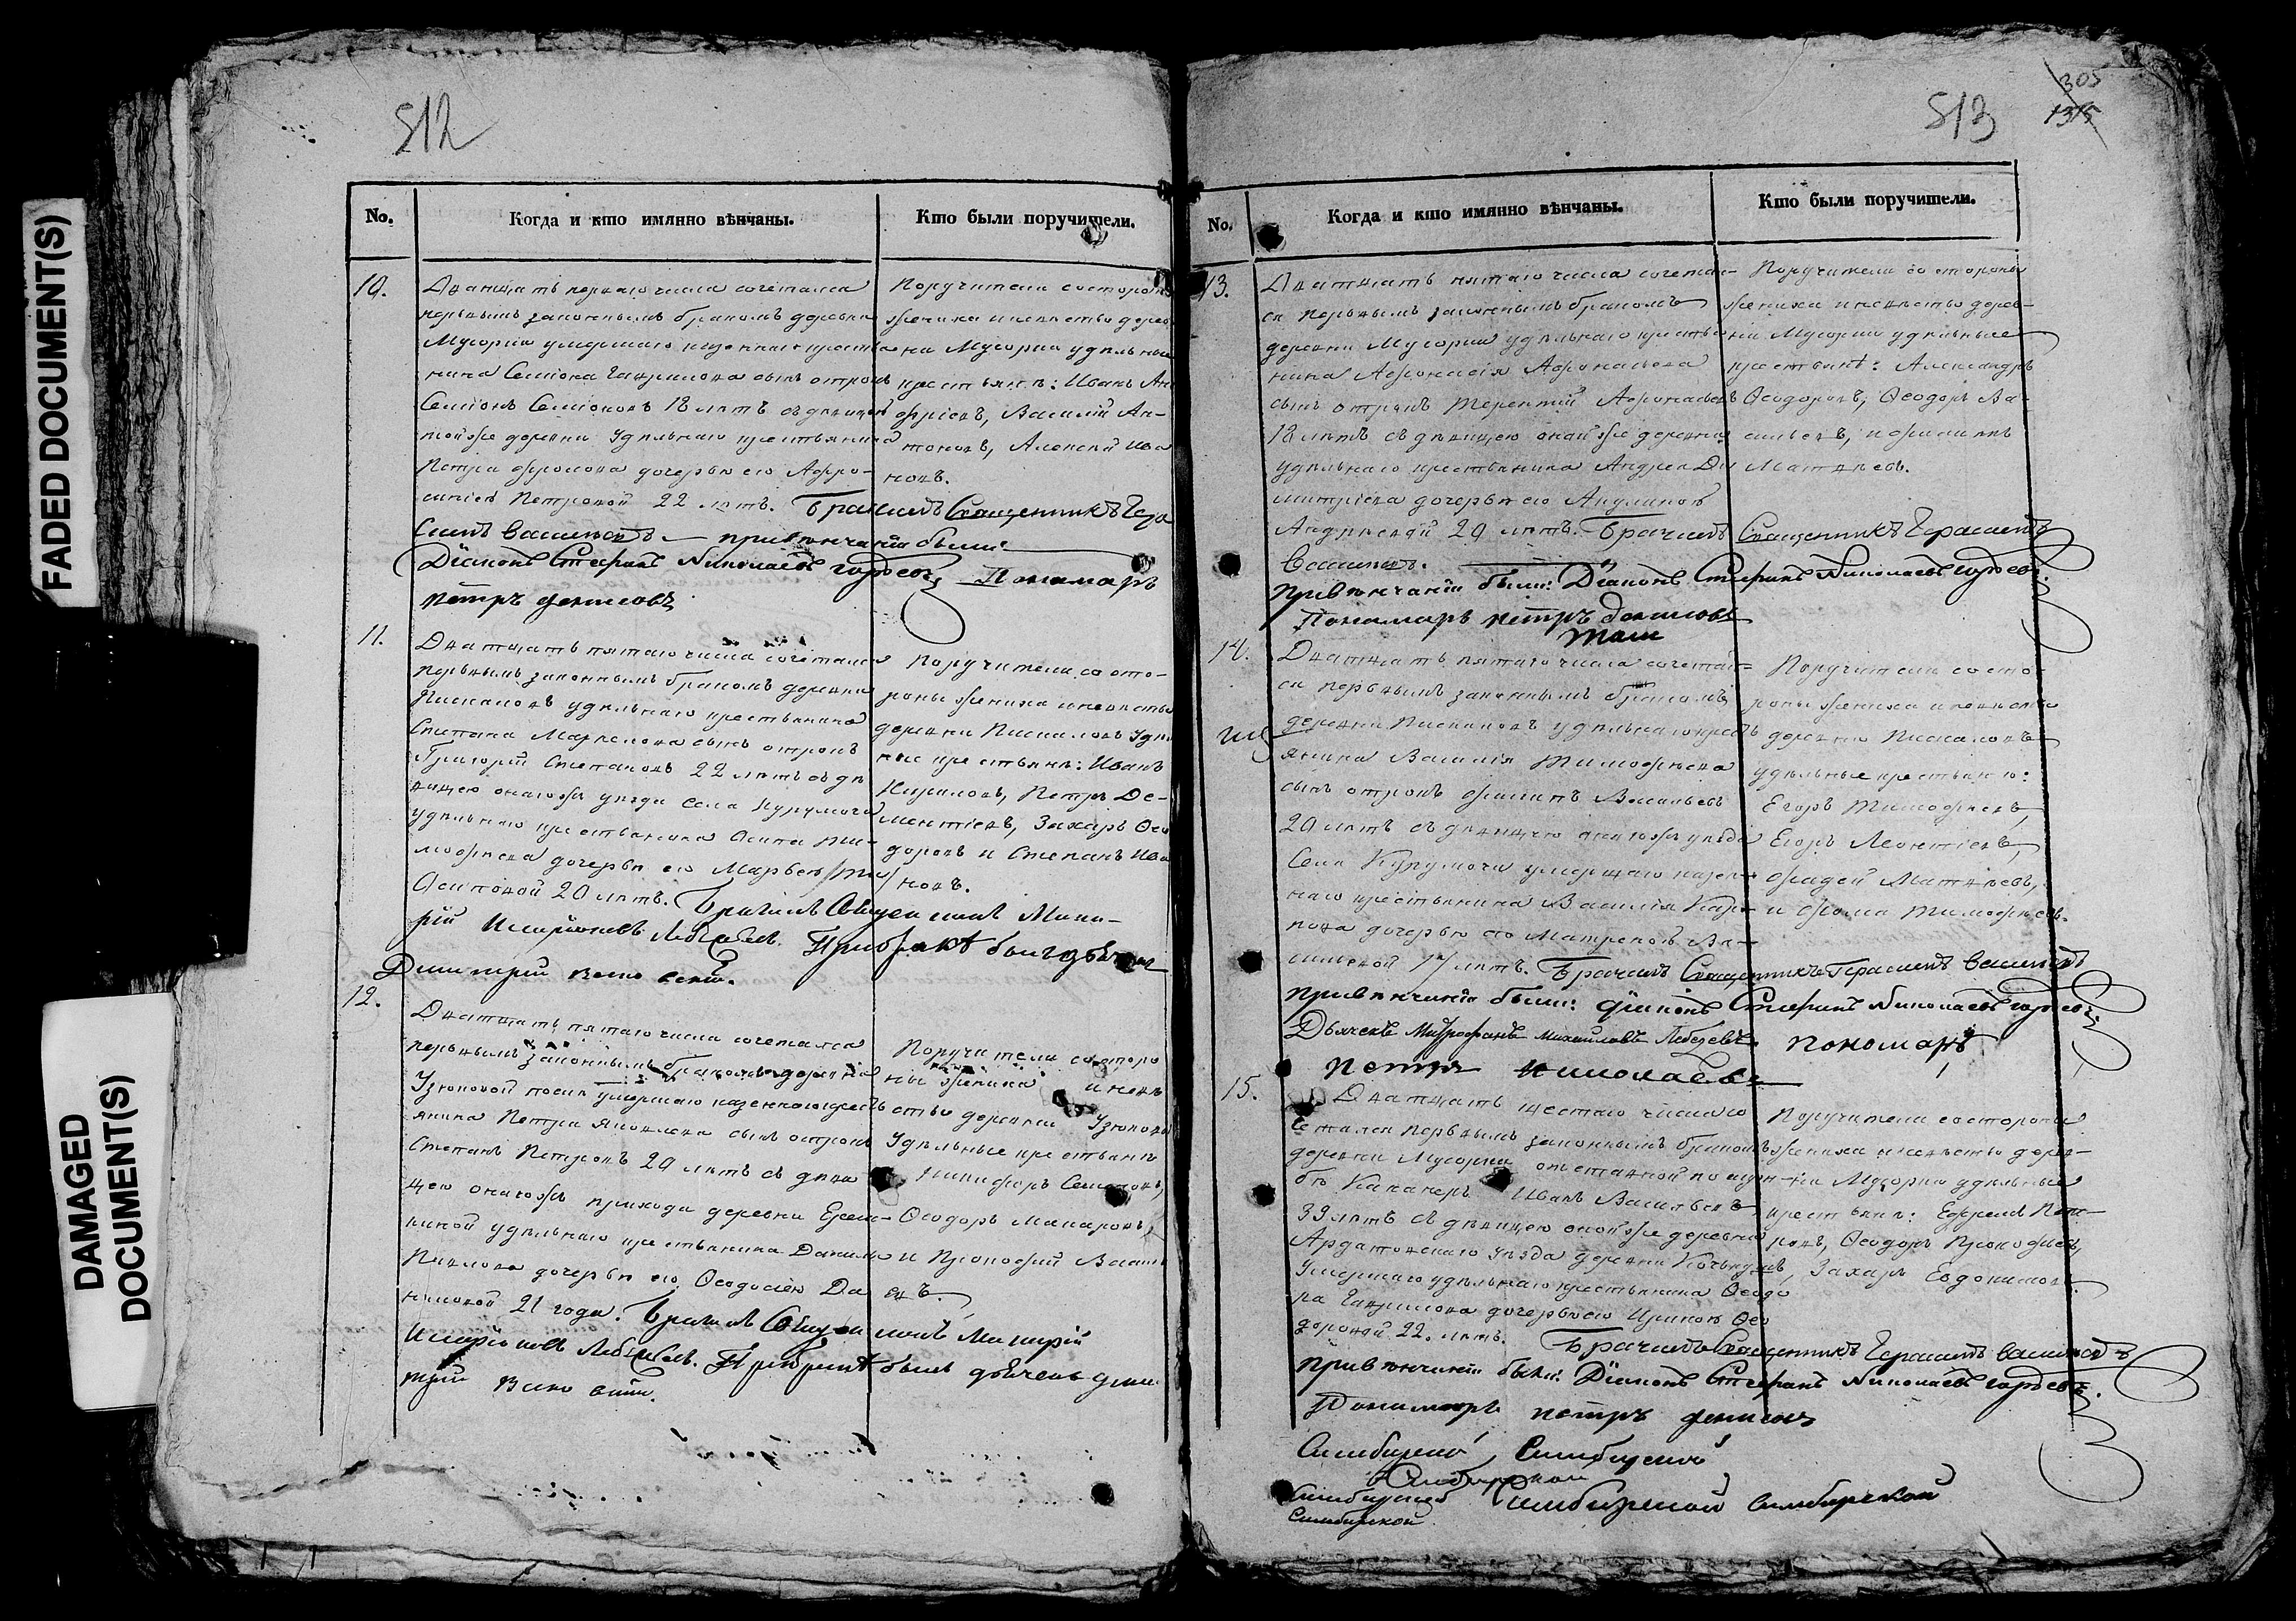 FADED DOCUMENT(S)
DAMAGED
DOCUMENT(S)
512
No.
Когда и кто имянно вѣнчаны.
Кто были поручители.
10.
Дватцать перваго числа сочетался
первымъ законнымъ бракомъ деревни
Мусорки умершаго казеннаго крестья
нина Семіона Гаврилова сынъ отрокъ
Семіонъ Семіоновъ 18 лѣтъ съ девицею
той же деревни удѣльнаго крестьянина
Петра Фролова дочерью его Афро-
синіею Петровой 22 лѣтъ. Бракилъ Священникъ Гера
симъ Васильевъ привенчаніи были:
Діаконъ Стефанъ Николаевъ Пономарь
петръ денисовъ
Поручители состороны
жениха и невесты дерев
ни Мусорки удѣльные
крестьяне: Иванъ Ан
дріевъ, Василій Ан-
тоновъ, Алексей Ива
новъ.
11.
Дватцать пятаго числа сочетался
первымъ законнымъ бракомъ деревни
Пискаловъ удѣльнаго крестьянина
Степана Маркелова сынъ отрокъ
Григорій Степановъ 22 лѣтъ съ де
вицею онагожъ уезда села Курумоча
удѣльнаго крестьянина Осипа Ти-
мофеева дочерью его Марьею
Осиповой 20 лѣтъ. Бракилъ Священникъ Мака-
рій Иларіоновъ Лебедевъ. При бракѣ былъ дьячекъ
Димитрій
Поручители со сто-
роны жениха и невесты
деревни Пискаловъ удѣ
ные крестьяне: Иванъ
Кириловъ, Петръ Де-
ментіевъ, Захаръ Фео
доровъ и Степанъ Ива
новъ.
12.
Дватцать пятаго числа сочетался
первымъ законнымъ бракомъ деревни
Узюковой умершаго казеннаго крестъ
янина Петра Яковлева сынъ отрокъ
Степанъ Петровъ 20 лѣтъ съ деви
цею онагожъ прихода деревни Ерем-
киной удѣльнаго крестьянина Данила
Павлова дочерью его Феодосіею Да
ниловой 21 года. Бракилъ Священникъ Макарій
Иларіоновъ Лебедевъ. При бракѣ былъ дьячекъ дими
трій
Поручители со сторо
ны жениха и неве
сты деревни Узюково
Удѣльные крестьяне
Никифоръ Семеновъ,
Феодоръ Макаровъ,
и Прокофий Василь
евъ.
513
305
1315
No.
Когда и кто имянно вѣнчаны.
Кто были поручители.
13.
Дватцать пятаго числа сочетал-
ся первымъ законнымъ бракомъ
деревни Мусорки удѣльнаго крестья
нина Афонасія Афонасьева
сынъ отрокъ Терентий Афонасьевъ
18 лѣтъ съ девицею онай же деревни
удѣльнаго крестьянина Андрея Ди
митріева дочерью его Акулиною
Андреевой 20 лѣтъ. Брачилъ Священникъ Герасимъ
Васильевъ.
привенчаніи были: Діаконъ Стефанъ Николаевъ
Пономарь петръ денисовъ
Поручители со стороны
жениха и невесты дерев-
ни Мусорки удѣльные
крестьяне: Александръ
Феодоровъ, Феодоръ Ва-
сильевъ, и Филиппъ
Матвеевъ.
14.
Дватцать пятаго числа сочетал-
ся первымъ законнымъ бракомъ
деревни Пискаловъ удѣльнаго крестъ
янина Василія Тимофеева
сынъ отрокъ Филипъ Васильевъ
20 лѣтъ съ девицею онагожъ уезда
Села Курумоча умершаго казен-
наго крестьянина Василія Кар-
пова дочерью его Матреною Ва-
сильевой 17 лѣтъ. Брачилъ Священникъ Герасимъ Васильевъ
привенчаніи были: діаконъ Стефанъ Николаевъ
Дьячекъ Митрофанъ Михаиловъ Лебедевъ. пономарь
петръ Николаевъ
Поручители со сто-
роны жениха и невесты
деревни Пискаловъ
удѣльные крестьяне:
Егоръ Тимофеевъ,
Егоръ Леонтіевъ,
Фадей Матвеевъ,
и Фома Тимофеевъ.
15.
Дватцать шестаго числа со
четался первымъ законнымъ бракомъ
деревни Мусорки отставной
Иванъ Васильевъ,
39 лѣтъ съ девицею оной же деревни
Ардатовскаго уезда деревни
Умершаго удѣльнаго крестьянина Феодо
ра Гаврилова дочерью его Ириною Фео
доровой 22. лѣтъ. Брачилъ Священникъ Герасимъ Васильевъ
привенчаніи были: Діаконъ Стефанъ Николаевъ
Пономарь петръ денисовъ
Поручители со стороны
жениха и невесты дерев-
ни Мусорки удѣльные
крестьяне: Ефремъ Пет-
ровъ, Феодоръ Прокофьевъ,
Захаръ Евдокимовъ.
Симбирской Симбирской
Симбирской
Симбирской Симбирской Симбирской
Симбирской